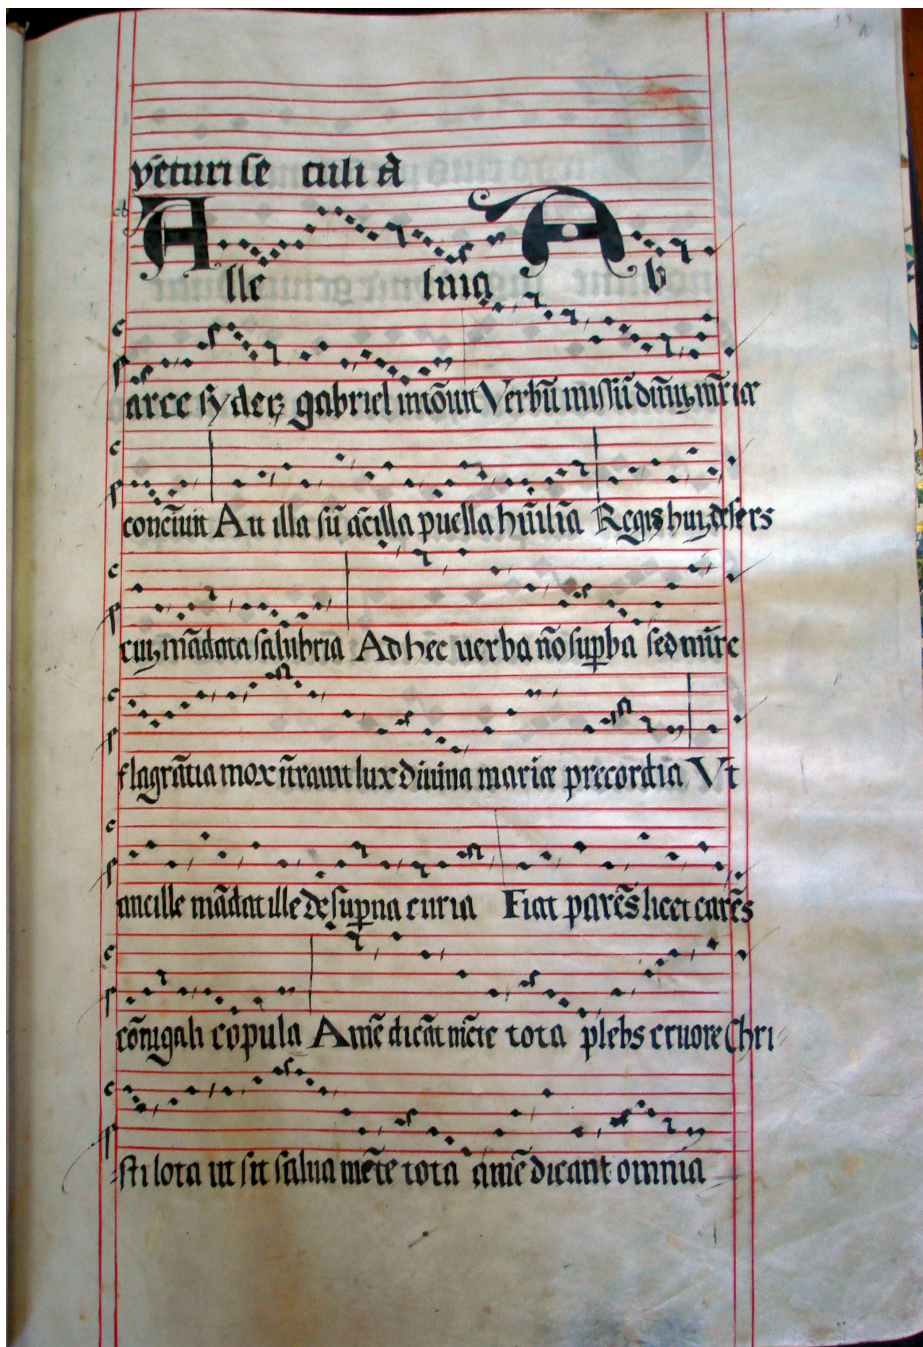 vēturi se culi A
A lle luia A b
arce syderꝫ gabriel intōuit Verbū missū dn̄m nr̄ īt
conciuit Au illa sū ācilla puella hūilīa Regis huiꝰ defers
cuiꝰ mādata salubria Ad hec uerba nō supba sed mire
flagrātia mox ītrauit lux diuina marie precordia Vt
ancille mādat ille de supna curia Fiat parēs licet carēs
cōiugali copula Amē dicāt mēte tota plebs cruore Chri
sti lota ut sit salua mēte tota amē dicant omnia